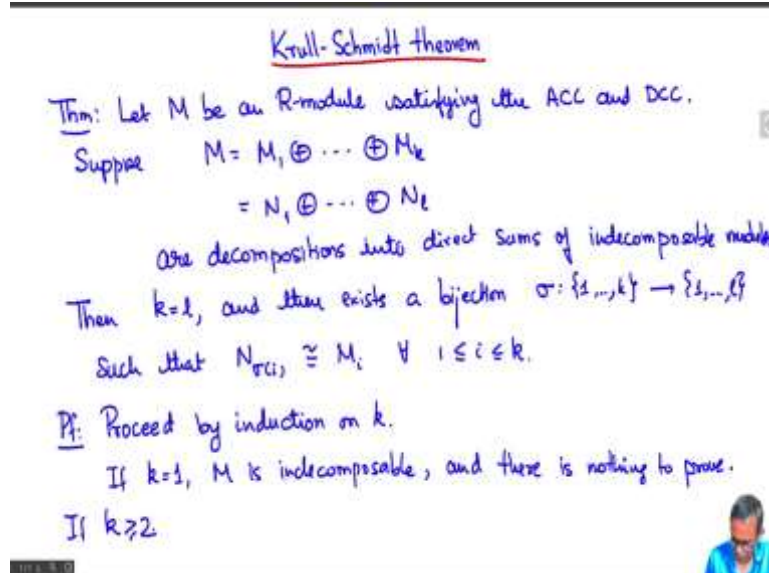 Krull-Schmidt theorem
Thm: Let M be an R-module satisfying the ACC and DCC.
Suppose M = M₁ ⊕ ··· ⊕ Mₖ
= N₁ ⊕ ··· ⊕ Nₗ
are decompositions into direct sums of indecomposable modules
Then k=l, and there exists a bijection σ: {1,...,k} → {1,...,l}
Such that N_σ(i) ≅ Mᵢ ∀ 1 ≤ i ≤ k.
Pf: Proceed by induction on k.
If k=1, M is indecomposable, and there is nothing to prove.
If k≥2